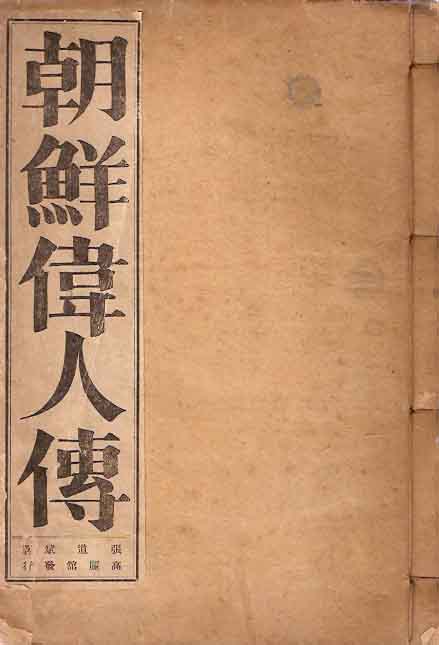 朝鮮偉人傳
張道斌著
高麗館發行